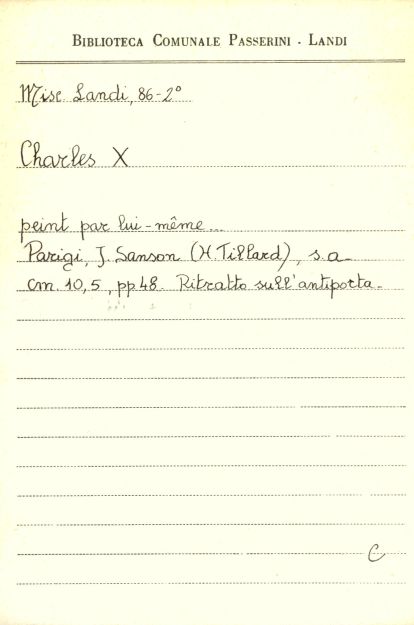 BIBLIOTECA COMUNALE PASSERINI - LANDI
Misc. Landi, 86-2°
Charles X
peint par lui-même...
Parigi, J. Sanson (H. Tillard), s.a.
cm. 10,5, pp. 48. Ritratto sull'antiporta.
C